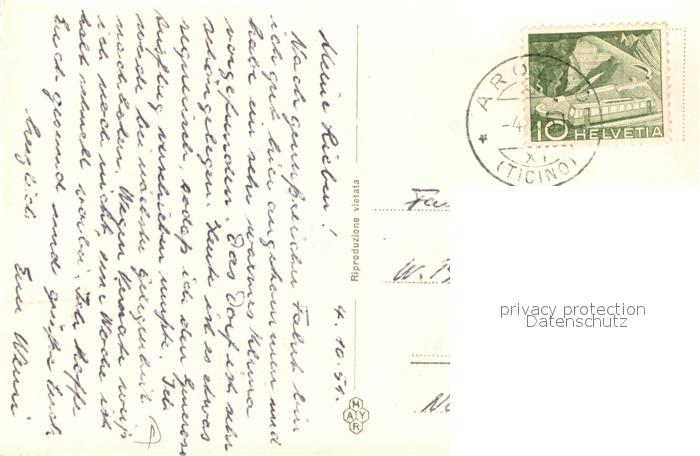 4. 10. 51.
Meine Lieben!
Nach genussreicher Fahrt bin
ich gut hier angekommen und
habe ein sehr warmes Klima
vorgefunden. Das Dorf ist sehr
schön gelegen. Heute ist es etwas
regnerisch, sodass ich den Generoso
Ausflug verschieben musste. Ich
werde bei nächster Gelegenheit
nachholen. Wegen Heimkehr weiss
ich noch nicht, eine Woche ist
bald schnell vorbei. Ich hoffe
Euch gesund und grüsse Euch
herzlich Euer
Riproduzione vietata
MAYR
ARO
-4.
XI
(TICINO)
10 HELVETIA
Fam
W. B
privacy protection
Datenschutz